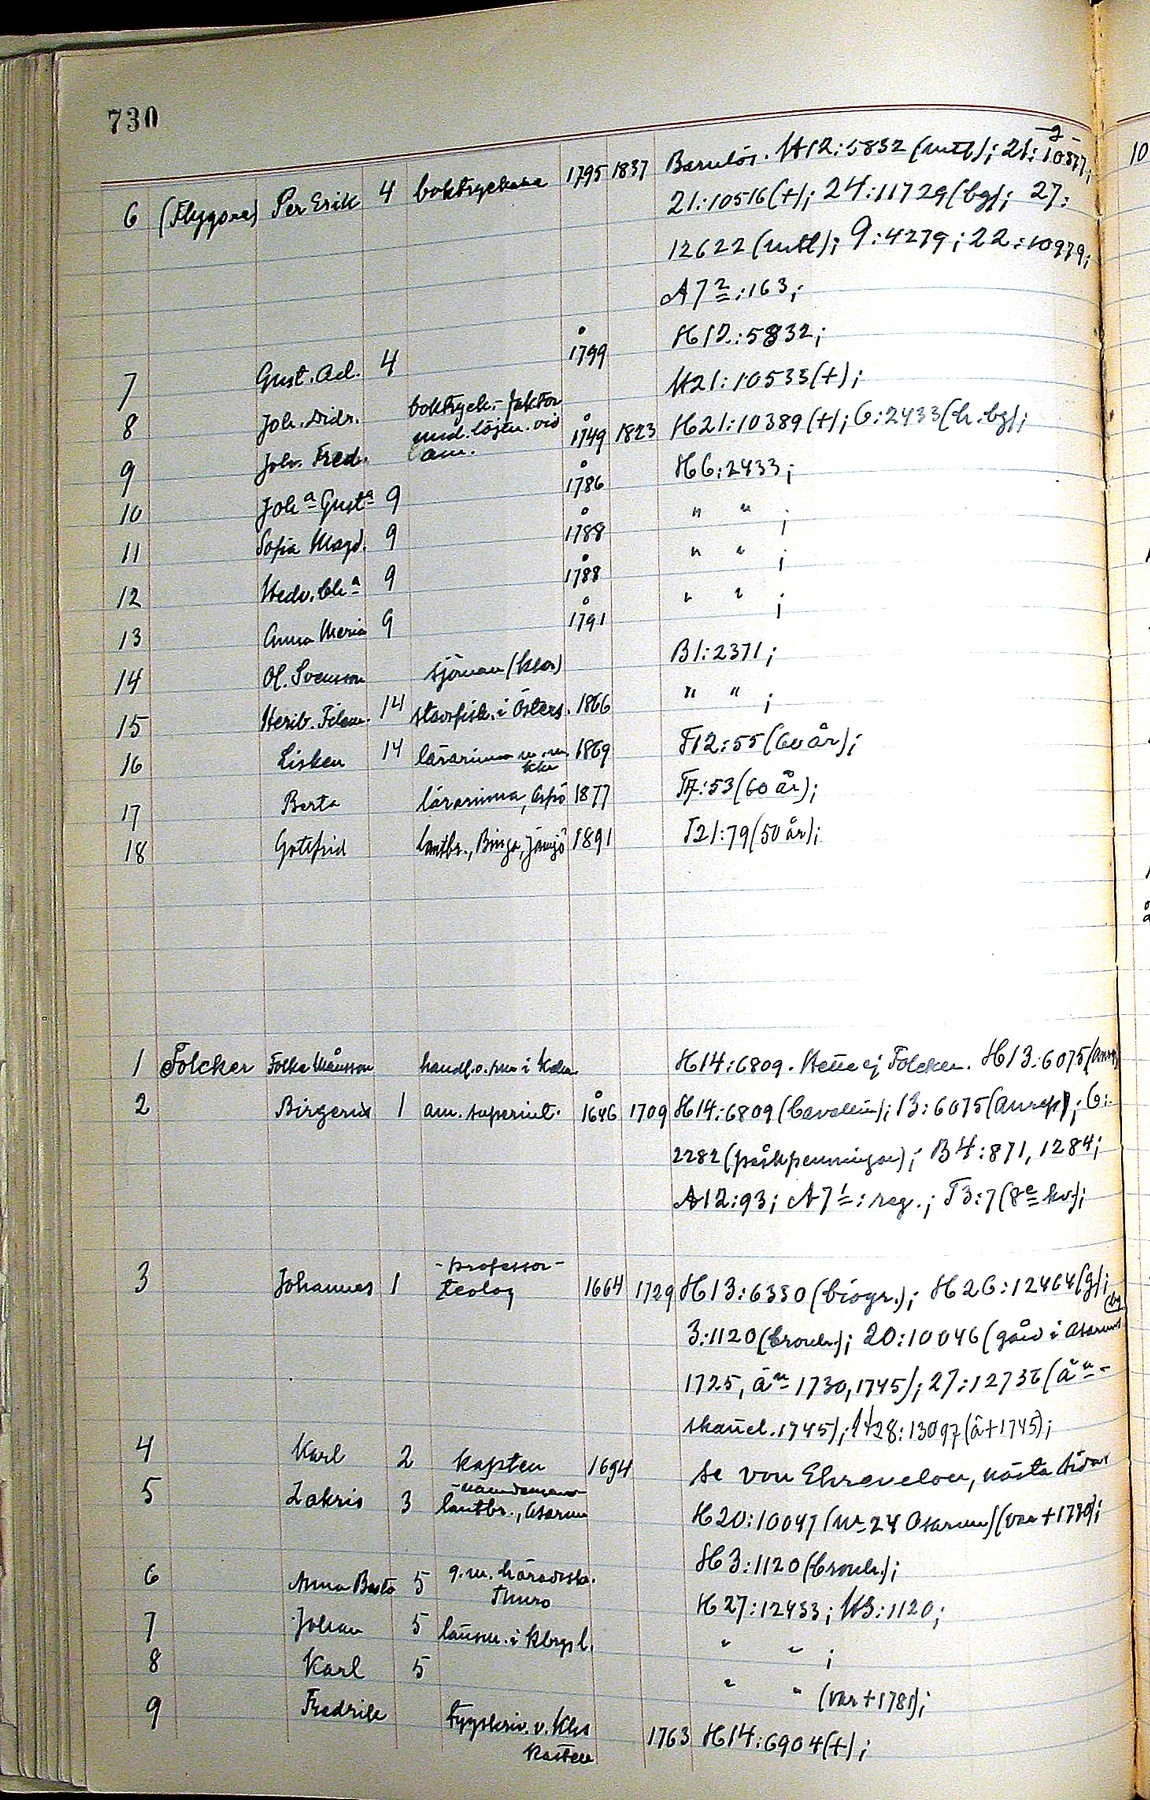 730
6 (Flygare) Per Erik 4 boktryckare 1795 1837 Barnlös. H12:5832 (mtl); 21:10877;
21:10516(+); 24:11729(bg); 27:
12622(mtl); 9:4279; 22:10979;
A7²:163;
7 Gust. Ad. 4 å 1799 H12:5832;
8 Joh. Didr. H21:10533(+);
9 Joh. Fred. boktryck.-faktor
vid am. å 1749 1823 H21:10389(+); 6:2433(h.bg);
10 Joh.ª Gust.ª 9 å 1786 H6:2433;
11 Sofia Magd. 9 å 1788 " " ;
12 Hedv. Ch.ª 9 å 1788 " " ;
13 Anna Maria 9 å 1791 " " ;
14 Ol. Svensson sjöman B1:2371;
15 Herib. Filem. 14 i Östers. 1866 " " ;
16 Lisken 14 lärarinna 1869 F12:55(60 år);
17 Berta lärarinna, Aspö 1877 T7:53(60 år);
18 Gottfrid lantbr., Binga, Jämjö 1891 T21:79(50 år);
1 Folcker Folke Månsson handl. o. i H14:6809. Hette ej Folcker. H13:6075
2 Birgerus 1 am. superint. å 1646 1709 H14:6809(Cavallin); 13:6075(Anrep); 6:
2282(påskpenningar); B4:871, 1284;
A12:93; A7¹: reg.; T3:7(8e kv);
3 Johannes 1 - professor -
teolog 1664 1729 H13:6380(biogr.); H26:12464(g);
3:1120; 20:10046(gård i Asarum
1725, än 1730, 1745); 27:12736
1745); H28:13097(å+1745);
4 Karl 2 kapten 1694 se von Ehrenclou, nästa sida
5 Zakris 3 nämndeman
lantbr., Asarum H20:10047(nr 24 Asarum)(var +1780);
H3:1120;
6 Anna Beata 5 g.m. häradssk.
Thuro H27:12433; H3:1120;
7 Johan 5 länsm. i " " ;
8 Karl 5 " " (var +1781);
9 Fredrik tygskriv. v. Khs
kastell 1763 H14:6904(+);
10